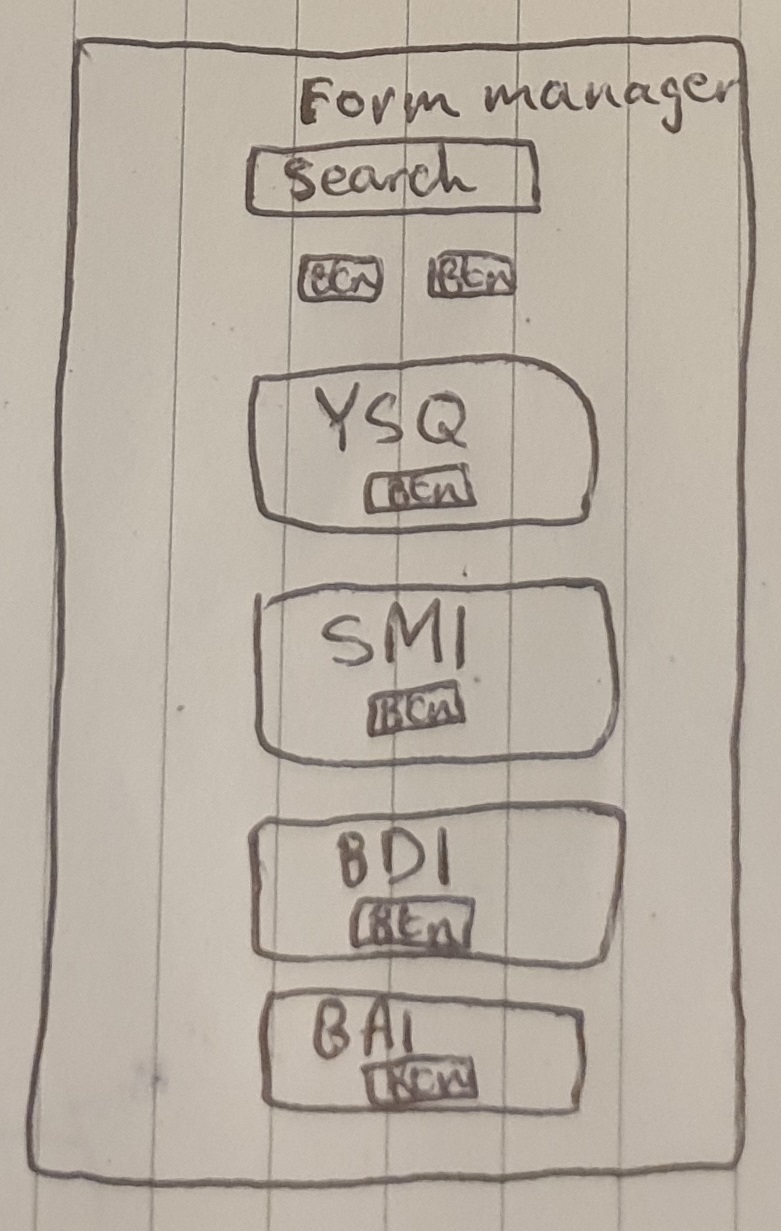 Form manager
Search
Btn Btn
YSQ
Btn
SMI
Btn
BDI
Btn
BAI
Btn